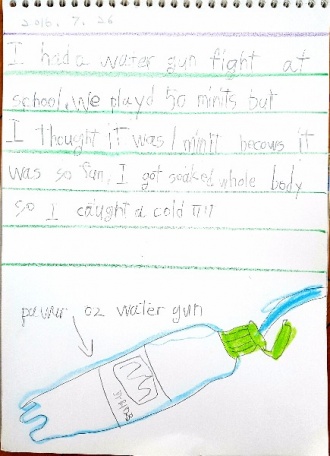 2016. 7. 26
I had a water gun fight at
school. We playd 50 minits but
I thought it was 1 minit becaus it
was so fun, I got soaked whole body
so I caught a cold ㅠㅠ
water gun